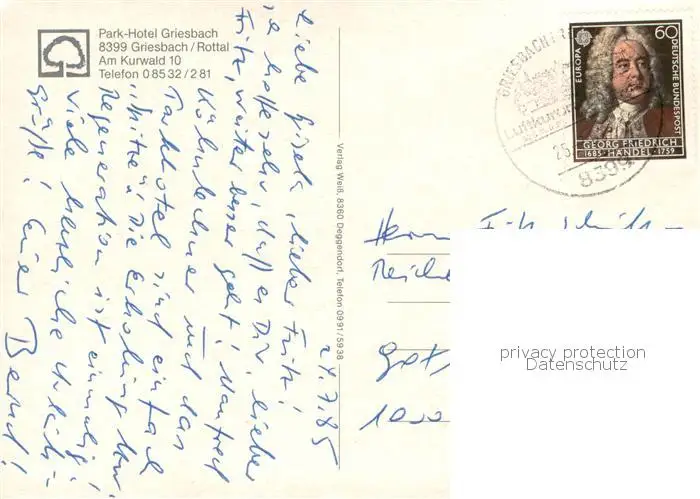 Park-Hotel Griesbach
8399 Griesbach/Rottal
Am Kurwald 10
Telefon 0 85 32 / 2 81
24.7.85
Liebe Gisela, lieber Fritz!
ich hoffe sehr, daß es Dir, lieber
Fritz, weiter besser geht! Manfred
Köhnlechner und das
Parkhotel sind einfach
"Spitze"! Die Erholung bzw.
Regeneration ist einmalig!
Viele herzliche Urlaubs-
grüße! Euer Bernd!
Verlag Weiß, 8360 Deggendorf, Telefon 09 91 / 59 38
GRIESBACH I.
Luftkurort
25.
8399
EUROPA
60
DEUTSCHE BUNDESPOST
GEORG FRIEDRICH
1685 HÄNDEL 1759
Herrn Fritz
Reiche
1000
privacy protection
Datenschutz